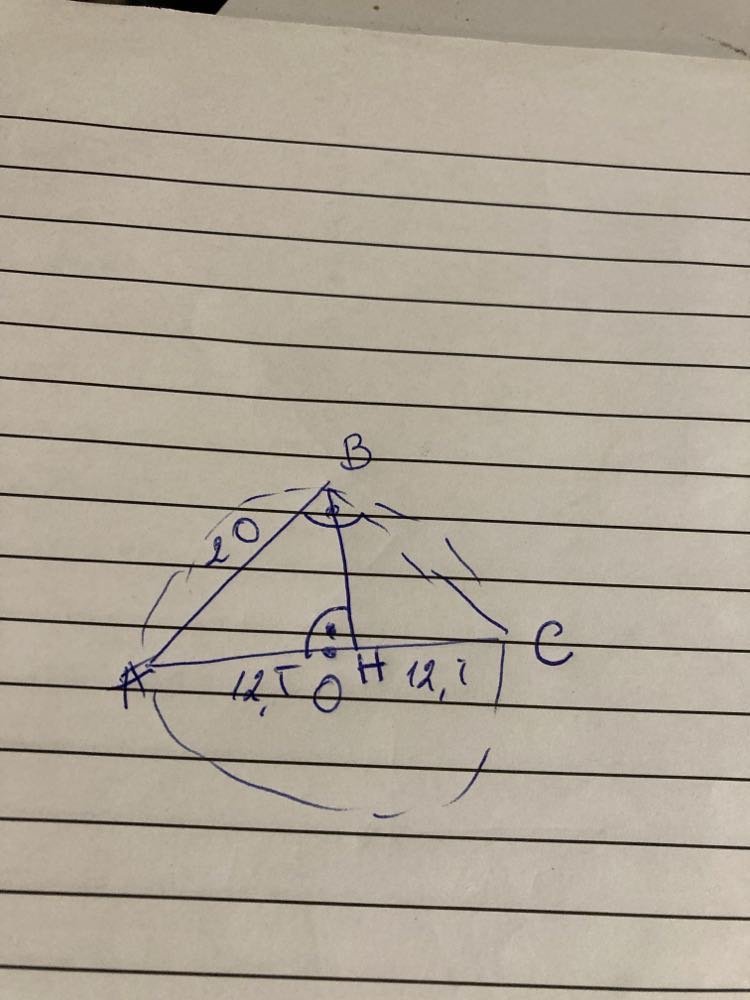 B
20
A 12,5 O H 12,5 C